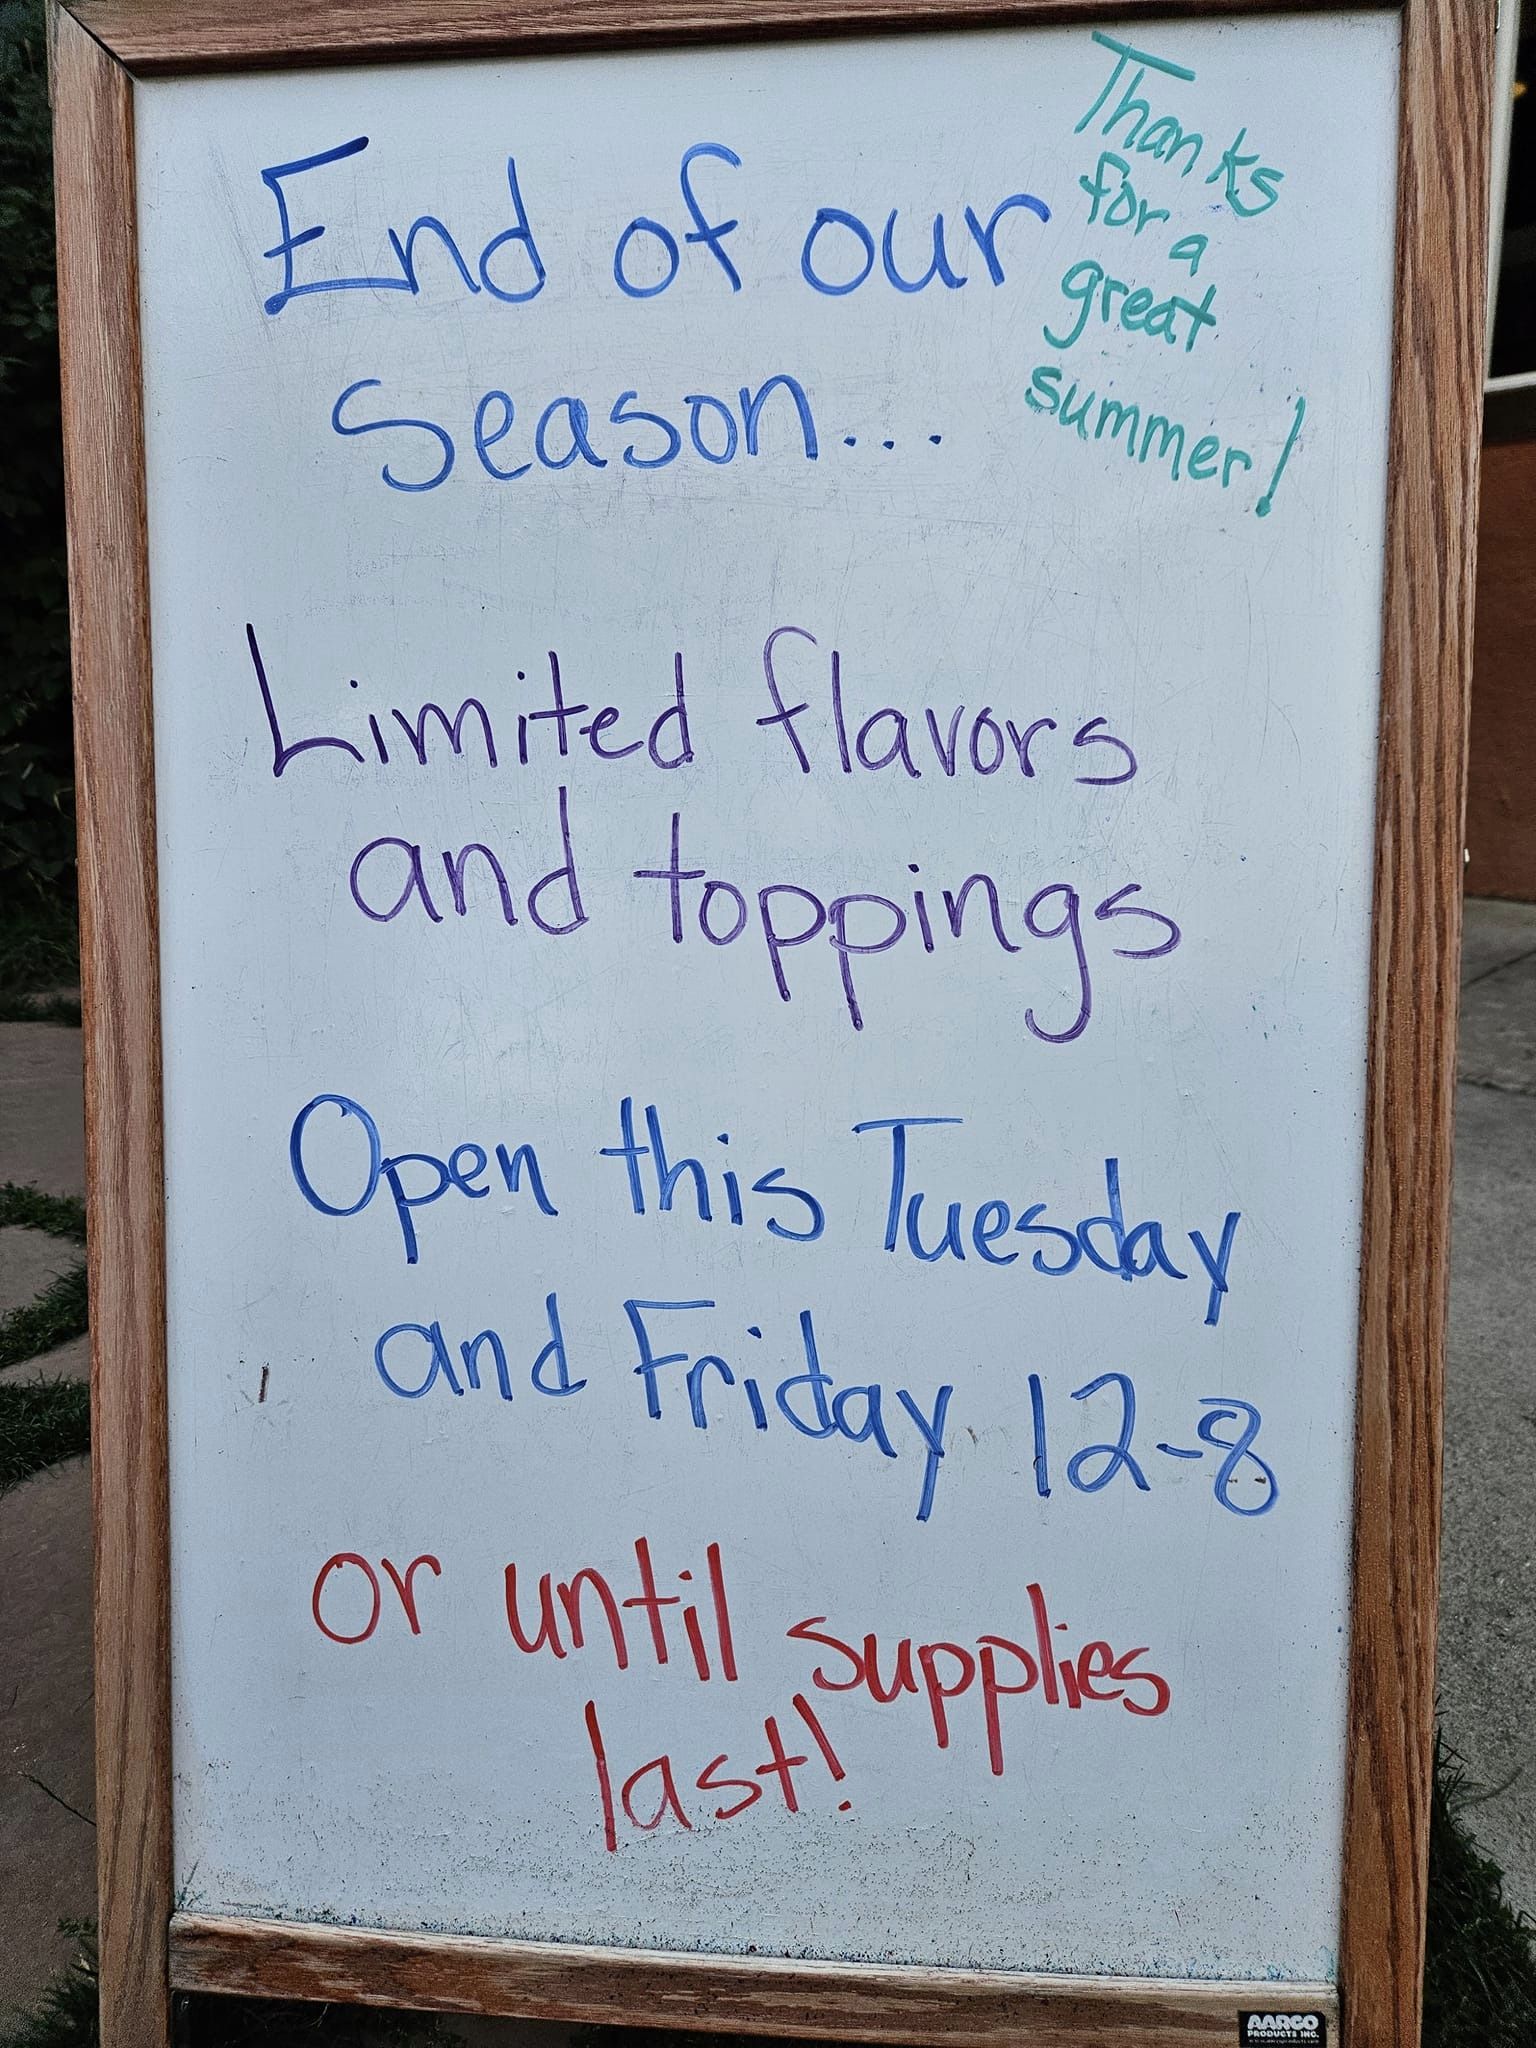 End of our
season...
Thanks
for a
great
summer!
Limited flavors
and toppings
Open this Tuesday
and Friday 12-8
or until supplies
last!
AARCO
PRODUCTS INC.